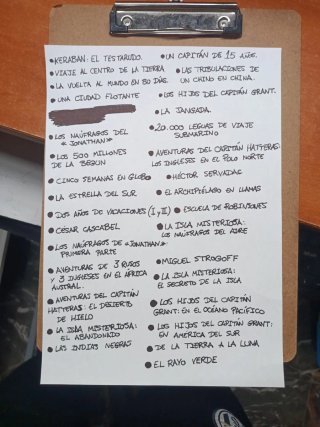 • KERABAN: EL TESTARUDO.
• VIAJE AL CENTRO DE LA TIERRA
• LA VUELTA AL MUNDO EN 80 DÍAS.
• UNA CIUDAD FLOTANTE
• LOS NAÚFRAGOS DEL
«JONATHAN»
• LOS 500 MILLONES
DE LA BEGUN
• CINCO SEMANAS EN GLOBO
• LA ESTRELLA DEL SUR
• DOS AÑOS DE VACACIONES (I y II)
• CÉSAR CASCABEL
• LOS NAÚFRAGOS DE «JONATHAN»:
PRIMERA PARTE
• AVENTURAS DE 3 RUSOS
Y 3 INGLESES EN EL ÁFRICA
AUSTRAL.
• AVENTURAS DEL CAPITÁN
HATTERAS: EL DESIERTO
DE HIELO
• LA ISLA MISTERIOSA:
EL ABANDONADO
• LAS INDIAS NEGRAS
• UN CAPITÁN DE 15 AÑOS.
• LAS TRIBULACIONES DE
UN CHINO EN CHINA.
• LOS HIJOS DEL CAPITÁN GRANT.
• LA JANGADA.
• 20.000 LEGUAS DE VIAJE
SUBMARINO
• AVENTURAS DEL CAPITÁN HATTERAS:
LOS INGLESES EN EL POLO NORTE
• HÉCTOR SERVADAC
• EL ARCHIPIÉLAGO EN LLAMAS
• ESCUELA DE ROBINSONES
• LA ISLA MISTERIOSA:
LOS NAÚFRAGOS DEL AIRE
• MIGUEL STROGOFF
• LA ISLA MISTERIOSA:
EL SECRETO DE LA ISLA
• LOS HIJOS DEL CAPITÁN
GRANT: EN EL OCÉANO PACÍFICO
• LOS HIJOS DEL CAPITÁN GRANT:
EN AMÉRICA DEL SUR
• DE LA TIERRA A LA LUNA
• EL RAYO VERDE